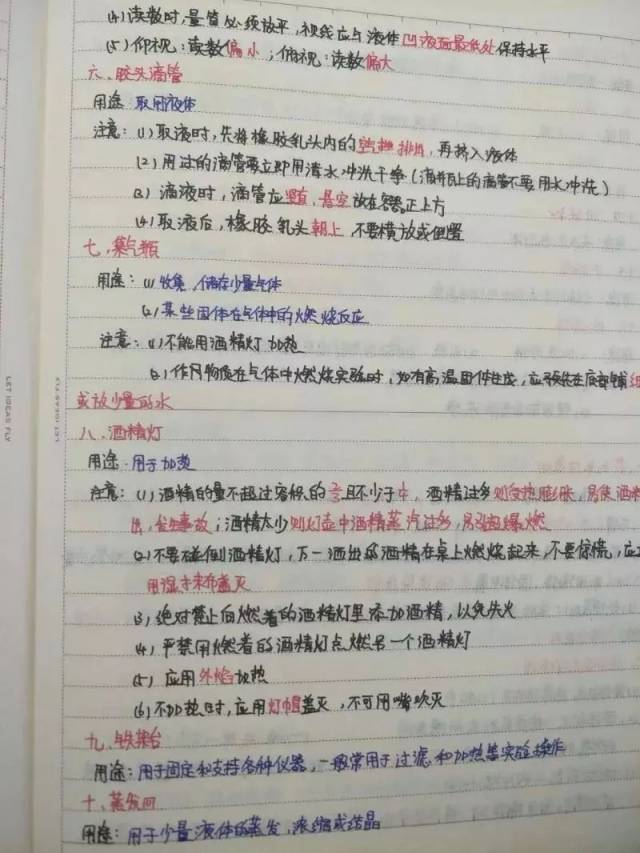 (4)读数时,量筒必须放平,视线应与液体凹液面最低处保持水平
(5)仰视:读数偏小;俯视:读数偏大
六、胶头滴管
用途:取用液体
注意:(1)取液时,先将橡胶乳头内的空气排出,再挤入液体
(2)用过的滴管要立即用清水冲洗干净(滴瓶上的滴管不要用水冲洗)
(3)滴液时,滴管应竖直、悬空放在容器正上方
(4)取液后,橡胶乳头朝上,不要横放或倒置
七、集气瓶
用途:(1)收集、储存少量气体
(2)某些固体在气体中的燃烧反应
注意:(1)不能用酒精灯加热
(2)作用物质在气体中燃烧实验时,如有高温固体生成,应预先在底部铺细
或放少量的水
八、酒精灯
用途:用于加热
注意:(1)酒精的量不超过容积的且不少于,酒精过多则受热膨胀,易使酒精
出,发生事故;酒精太少则灯壶中酒精蒸汽过多,易引起爆燃
(2)不要碰倒酒精灯,万一洒出的酒精在桌上燃烧起来,不要惊慌,应立
用湿抹布盖灭
(3)绝对禁止向燃着的酒精灯里添加酒精,以免失火
(4)严禁用燃着的酒精灯点燃另一个酒精灯
(5)应用外焰加热
(6)不加热时,应用灯帽盖灭,不可用嘴吹灭
九、铁架台
用途:用于固定和支持各种仪器,一般常用于过滤和加热等实验操作
十、蒸发皿
用途:用于少量液体的蒸发,浓缩或结晶
LET IDEAS FLY
LET IDEAS FLY